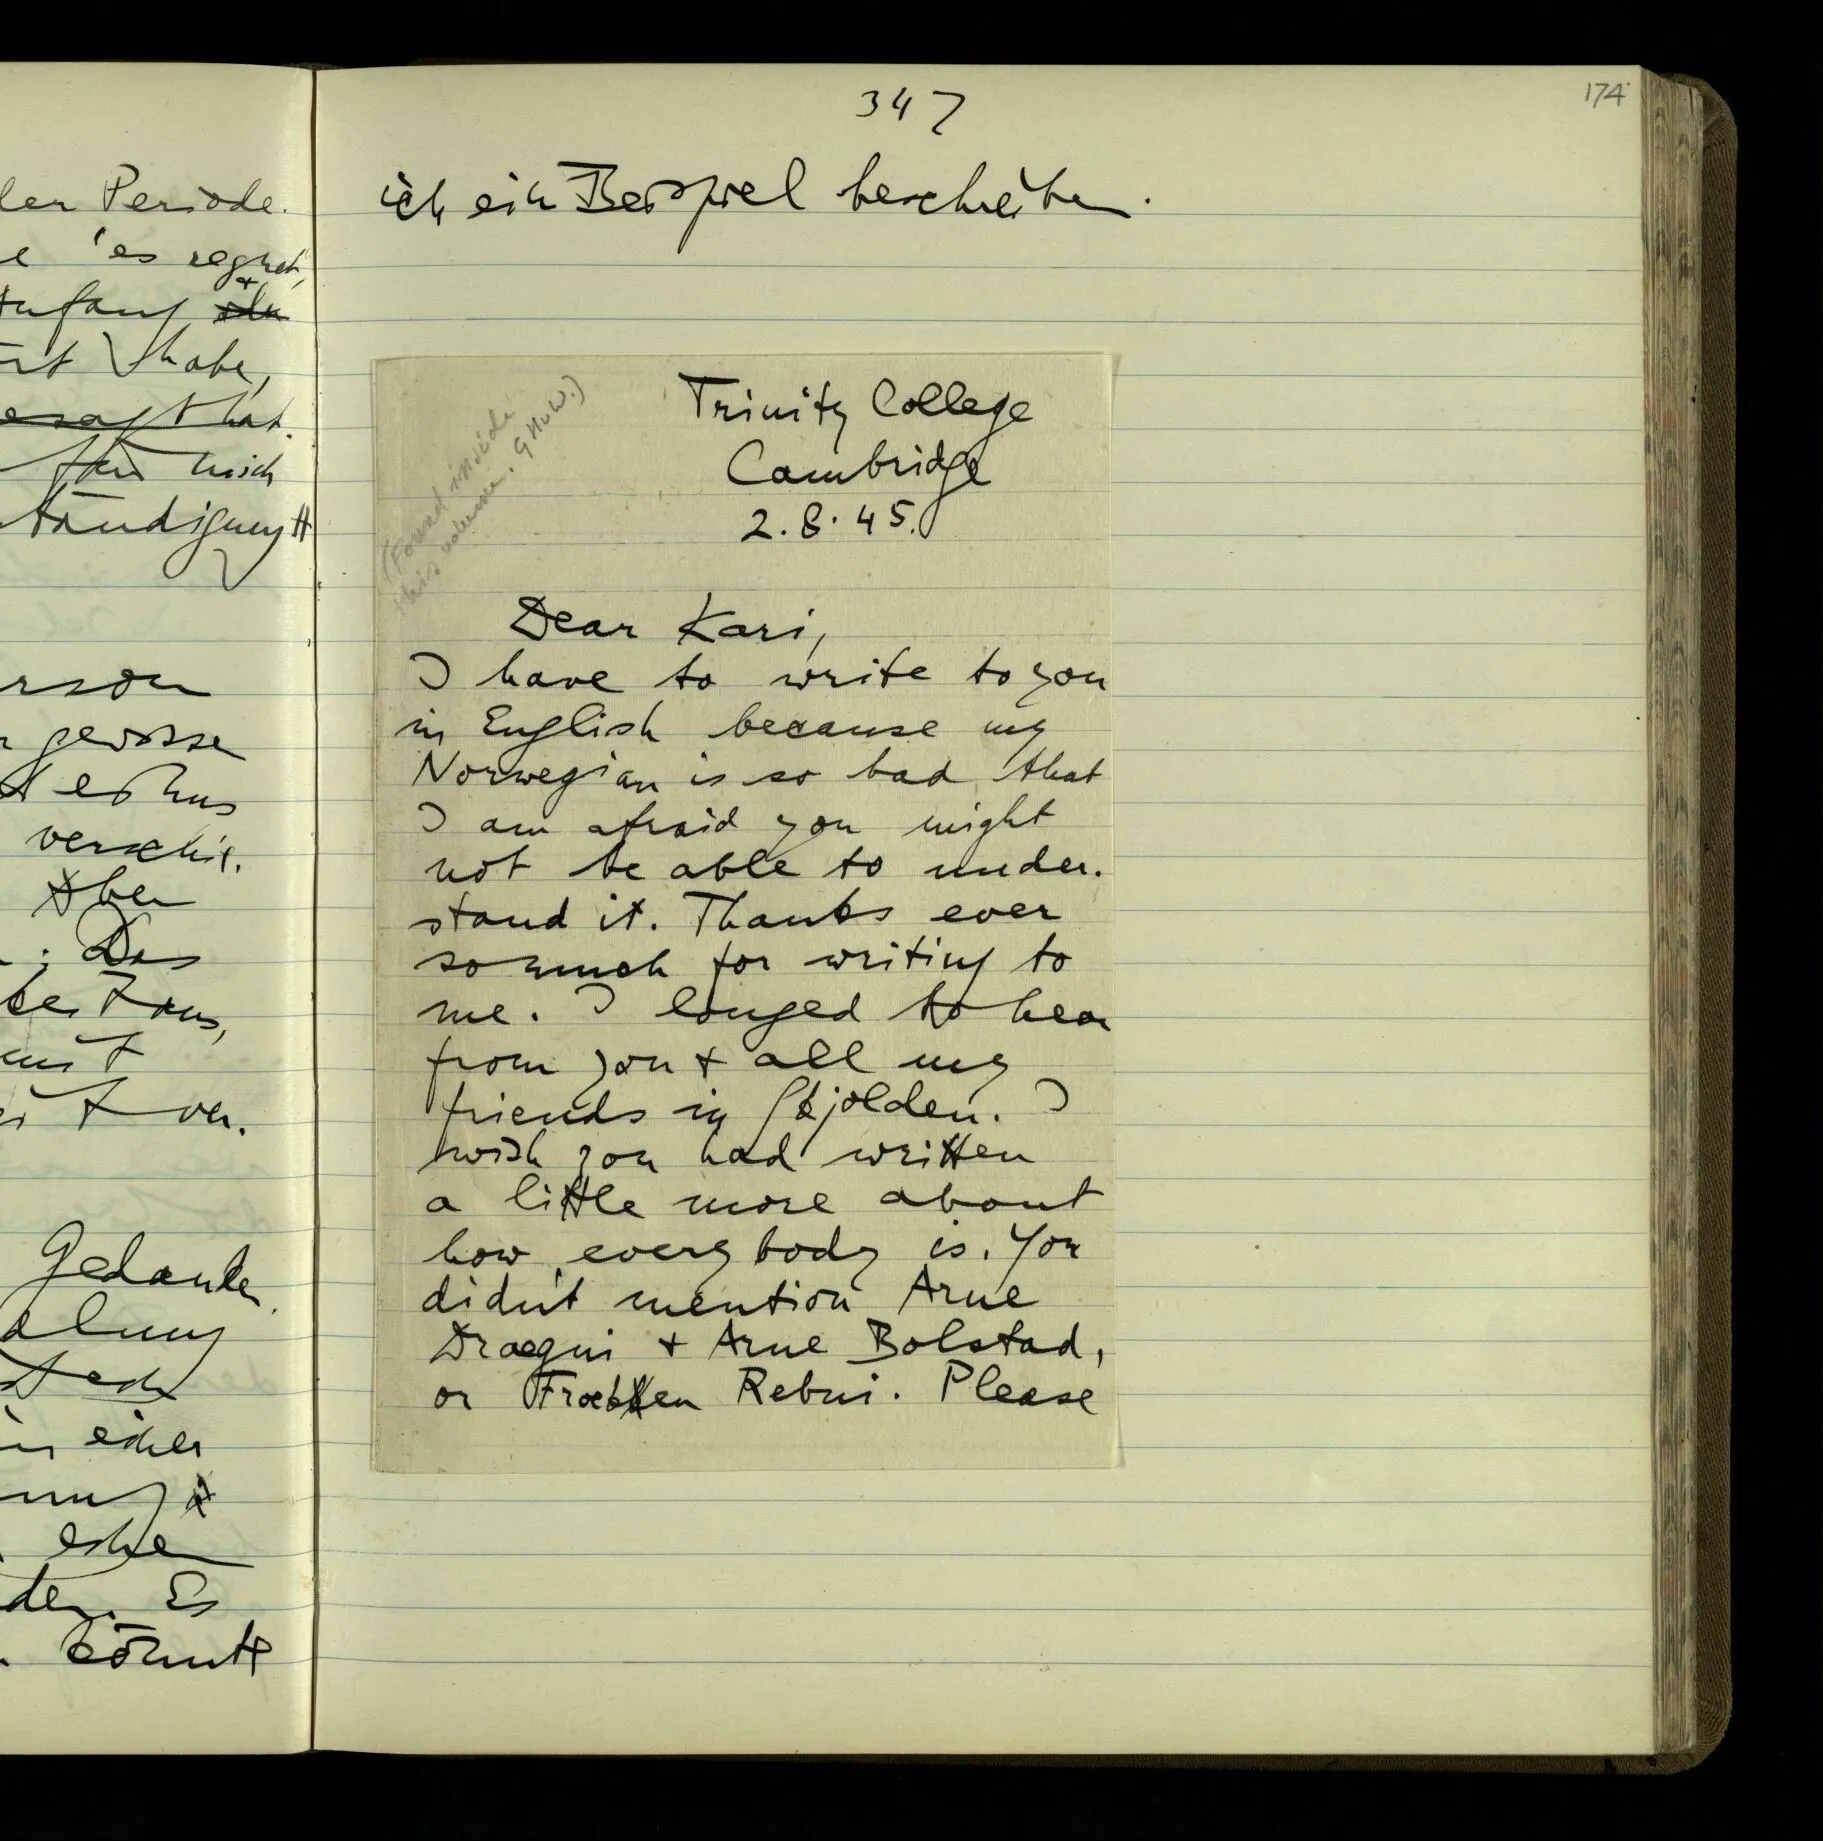 ler Periode.
'es regnet,
Anfang
habe,
für mich
ständigung
rson
gewisse
es muß
verschie.
Aber
Das
mit
ver.
Gedanken
einer
einen
den. Es
könnte
347
174
ich ein Beispiel beschreiben.
(Found inside
this volume. GHvW.)
Trinity College
Cambridge
2.8.45.
Dear Kari,
I have to write to you
in English because my
Norwegian is so bad that
I am afraid you might
not be able to under-
stand it. Thanks ever
so much for writing to
me. I longed to hear
from you + all my
friends in Skjolden. I
wish you had written
a little more about
how everybody is. You
didn't mention Arne
Draegni + Arne Bolstad,
or Rebni. Please